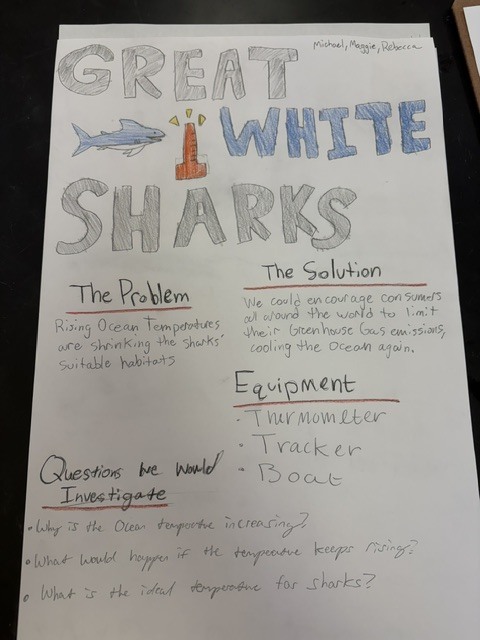 Michael, Maggie, Rebecca
GREAT
WHITE
SHARKS
The Problem
Rising Ocean Temperatures
are shrinking the sharks'
suitable habitats
The Solution
We could encourage consumers
all around the world to limit
their Greenhouse Gas emissions,
cooling the Ocean again.
Equipment
· Thermometer
· Tracker
· Boat
Questions We Would
Investigate
• Why is the Ocean temperature increasing?
• What would happen if the temperature keeps rising?
• What is the ideal temperature for sharks?